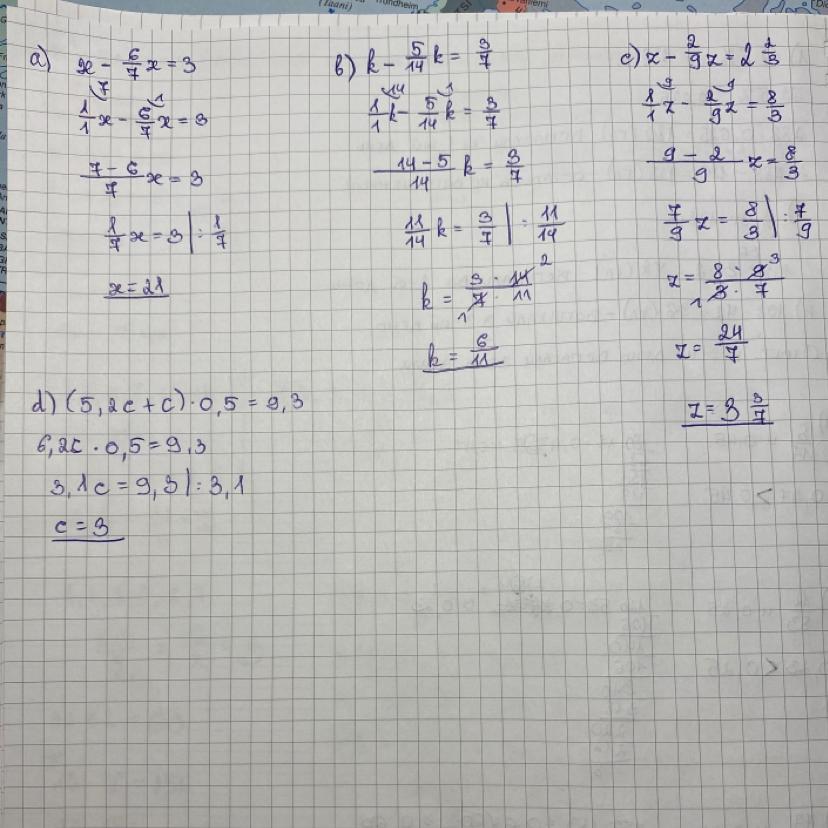 a) x - 6/7 x = 3
1/1 x - 6/7 x = 3
7 - 6/7 x = 3
1/7 x = 3 | : 1/7
x = 21
b) k - 5/14 k = 3/7
1/1 k - 5/14 k = 3/7
14 - 5/14 k = 3/7
11/14 k = 3/7 | : 11/14
k = 3 · 14 2/1 7 · 11
k = 6/11
c) z - 2/9 z = 2 2/3
1/1 z - 2/9 z = 8/3
9 - 2/9 z = 8/3
7/9 z = 8/3 | : 7/9
z = 8 · 9 3/1 3 · 7
z = 24/7
z = 3 3/7
d) (5,2c + c) · 0,5 = 9,3
6,2c · 0,5 = 9,3
3,1c = 9,3 | : 3,1
c = 3